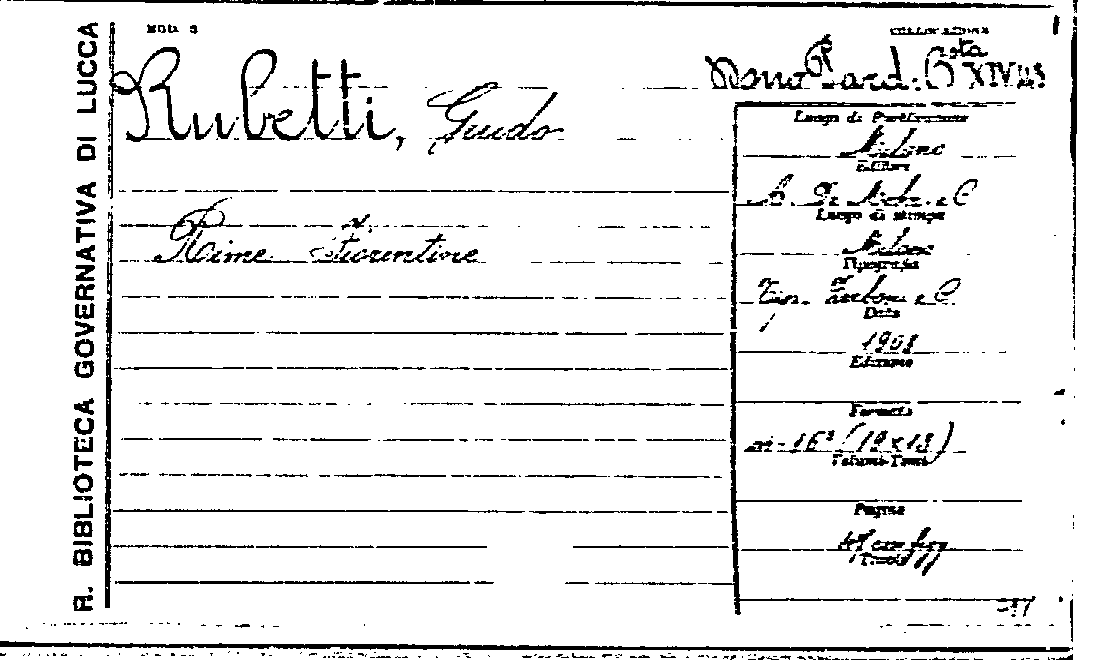 R. BIBLIOTECA GOVERNATIVA DI LUCCA
MOD. 3
COLLOCAZIONE
Rubetti, Guido
Rime Fiorentine
Luogo di Pubblicazione
Milano
Editore
Luogo di stampa
Milano
Tipografia
Tip. e C.
Data
1908
Edizione
Formato
in-16° (19x13)
Volumi-Tomi
Pagine